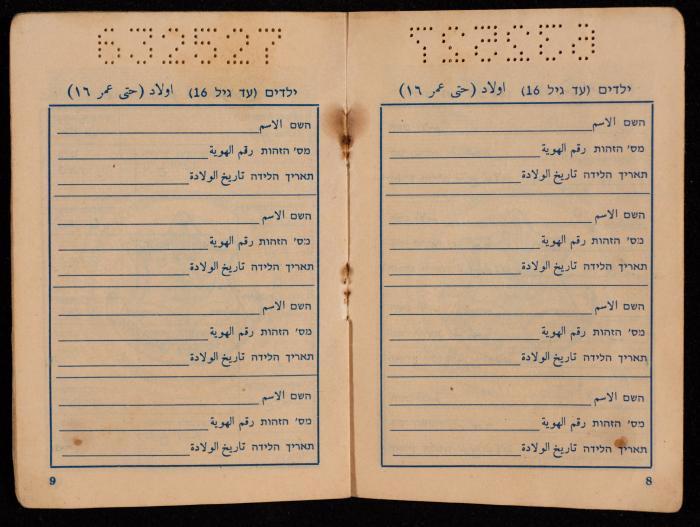 632527
ילדים (עד גיל 16) اولاد (حتى عمر ١٦)
השם الاسم
מס' הזהות رقم الهوية
תאריך הלידה تاريخ الولادة
השם الاسم
מס' הזהות رقم الهوية
תאריך הלידה تاريخ الولادة
השם الاسم
מס' הזהות رقم الهوية
תאריך הלידה تاريخ الولادة
השם الاسم
מס' הזהות رقم الهوية
תאריך הלידה تاريخ الولادة
8
632527
ילדים (עד גיל 16) اولاد (حتى عمر ١٦)
השם الاسم
מס' הזהות رقم الهوية
תאריך הלידה تاريخ الولادة
השם الاسم
מס' הזהות رقم الهوية
תאריך הלידה تاريخ الولادة
השם الاسم
מס' הזהות رقم الهوية
תאריך הלידה تاريخ الولادة
השם الاسم
מס' הזהות رقم الهوية
תאריך הלידה تاريخ الولادة
9